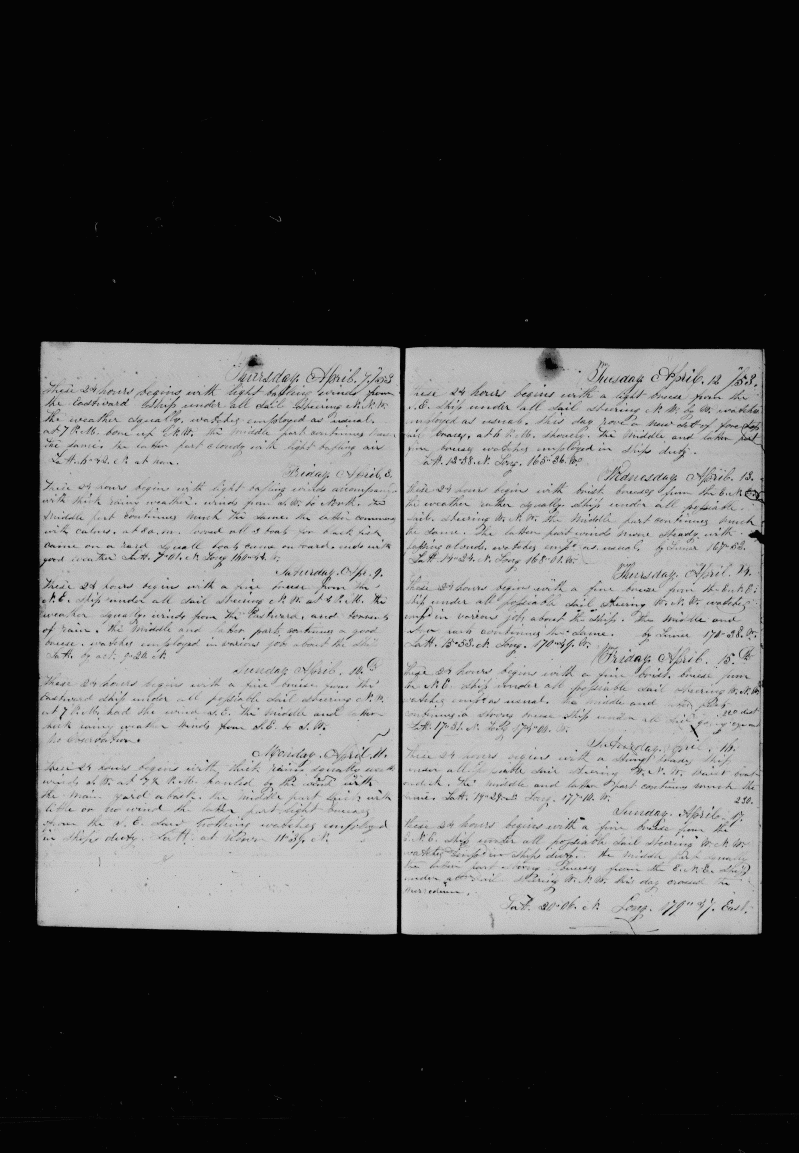 Thursday April. 7. 1853
These 24 hours begins with light baffling winds from
the Eastward Ship under all sail Steering N. N. W.
the weather squally, watches employed as usual.
at 7 P.M. the middle part continues
the same. the later part cloudy with light baffling air
Latt. 6-42. N. at
Friday April 8.
These 24 hours begins with light baffling winds
with thick rainy weather. winds from to North. the
middle part continues much the same. the later
with calms. at 8 a.m. lowed all 3 boats for black fish
came on a squall boats came on board. ends with
good weather Latt. 7-01. N. Long
Saturday. Apr. 9.
These 24 hours begins with a fine breese from the
N.E. ship under all sail steering N. W. at 4 P.M. the
weather squally winds from the Eastward, and torrents
of rain. the middle and later parts continues a good
breese. watches employed in various jobs about the ship
Latt. by act. 9-20. N.
Sunday April. 10th
These 24 hours begins with a fine breese from the
Eastward ship under all possiable sail steering N. W.
at 7 P.M. had the wind S.E. the middle and later
part rainy weather winds from S.E. to S.W.
No Observation.
Monday. April. 11.
These 24 hours begins with thick rainy squally weath
wind S.W. at 7½ P.M. hauled by the wind with
the main yard aback. the middle part with
little or no wind the later part light breeses
from the N.E. watches employed
in ships duty. Latt. at Noon 11-39. N.
Thusday April. 12 /53.
These 24 hours begins with a light breese from the
N.E. ship under all sail steering N. W. by W. watches
employed as usual. this day rove a new set of foretop
sail braces, at 6 P.M. showery. the middle and later part
fine breeses watches employed in ships duty.
Latt. 13-38. N. Long. 165-36. W.
Wednesday April. 13.
These 24 hours begins with brisk breeses from the E.N.E.
the weather rather squally ship under all possiable
sail. steering W. N. W. the middle part continues much
the same. The latter part winds more steady with
passing clouds. watches emp. as usual. by Luner 167-52.
Latt. 14-24. N. Long. 168-01. W.
Thursday April. 14.
These 24 hours begins with a fine breese from the E. N. E.
ship under all possiable sail steering W. N. W. watches
emp. in various jobs about the ship. the middle and
later part continues the same. by Luner 170-38. W.
Latt. 15-53. N. Long. 170-49. W.
Friday April. 15. th
These 24 hours begins with a fine brisk breese from
the N.E. ship under all possiable sail steering W. N. W.
watches emp. as usual. the middle and later part
continues a strong breese ship under all sail 220 dist
Latt. 17-31. N. Long 175-04. W.
Saturday April 16.
These 24 hours begins with a strong steady ship
under all possiable sail steering W. N. W.
the middle and later part continues much the
same. Latt. 19-29. N. Long. 177-10. W. 230.
Sunday April. 17.
These 24 hours begins with a fine breese from the
E. N. E. ship under all possiable sail steering W. N. W.
watches emp. in ships duty. the middle part
the later part strong breeses from the E. N. E. ship
under all sail steering W. N. W. this day crossed the
meredian.
Latt. 20-06. N. Long. 179-47. East.